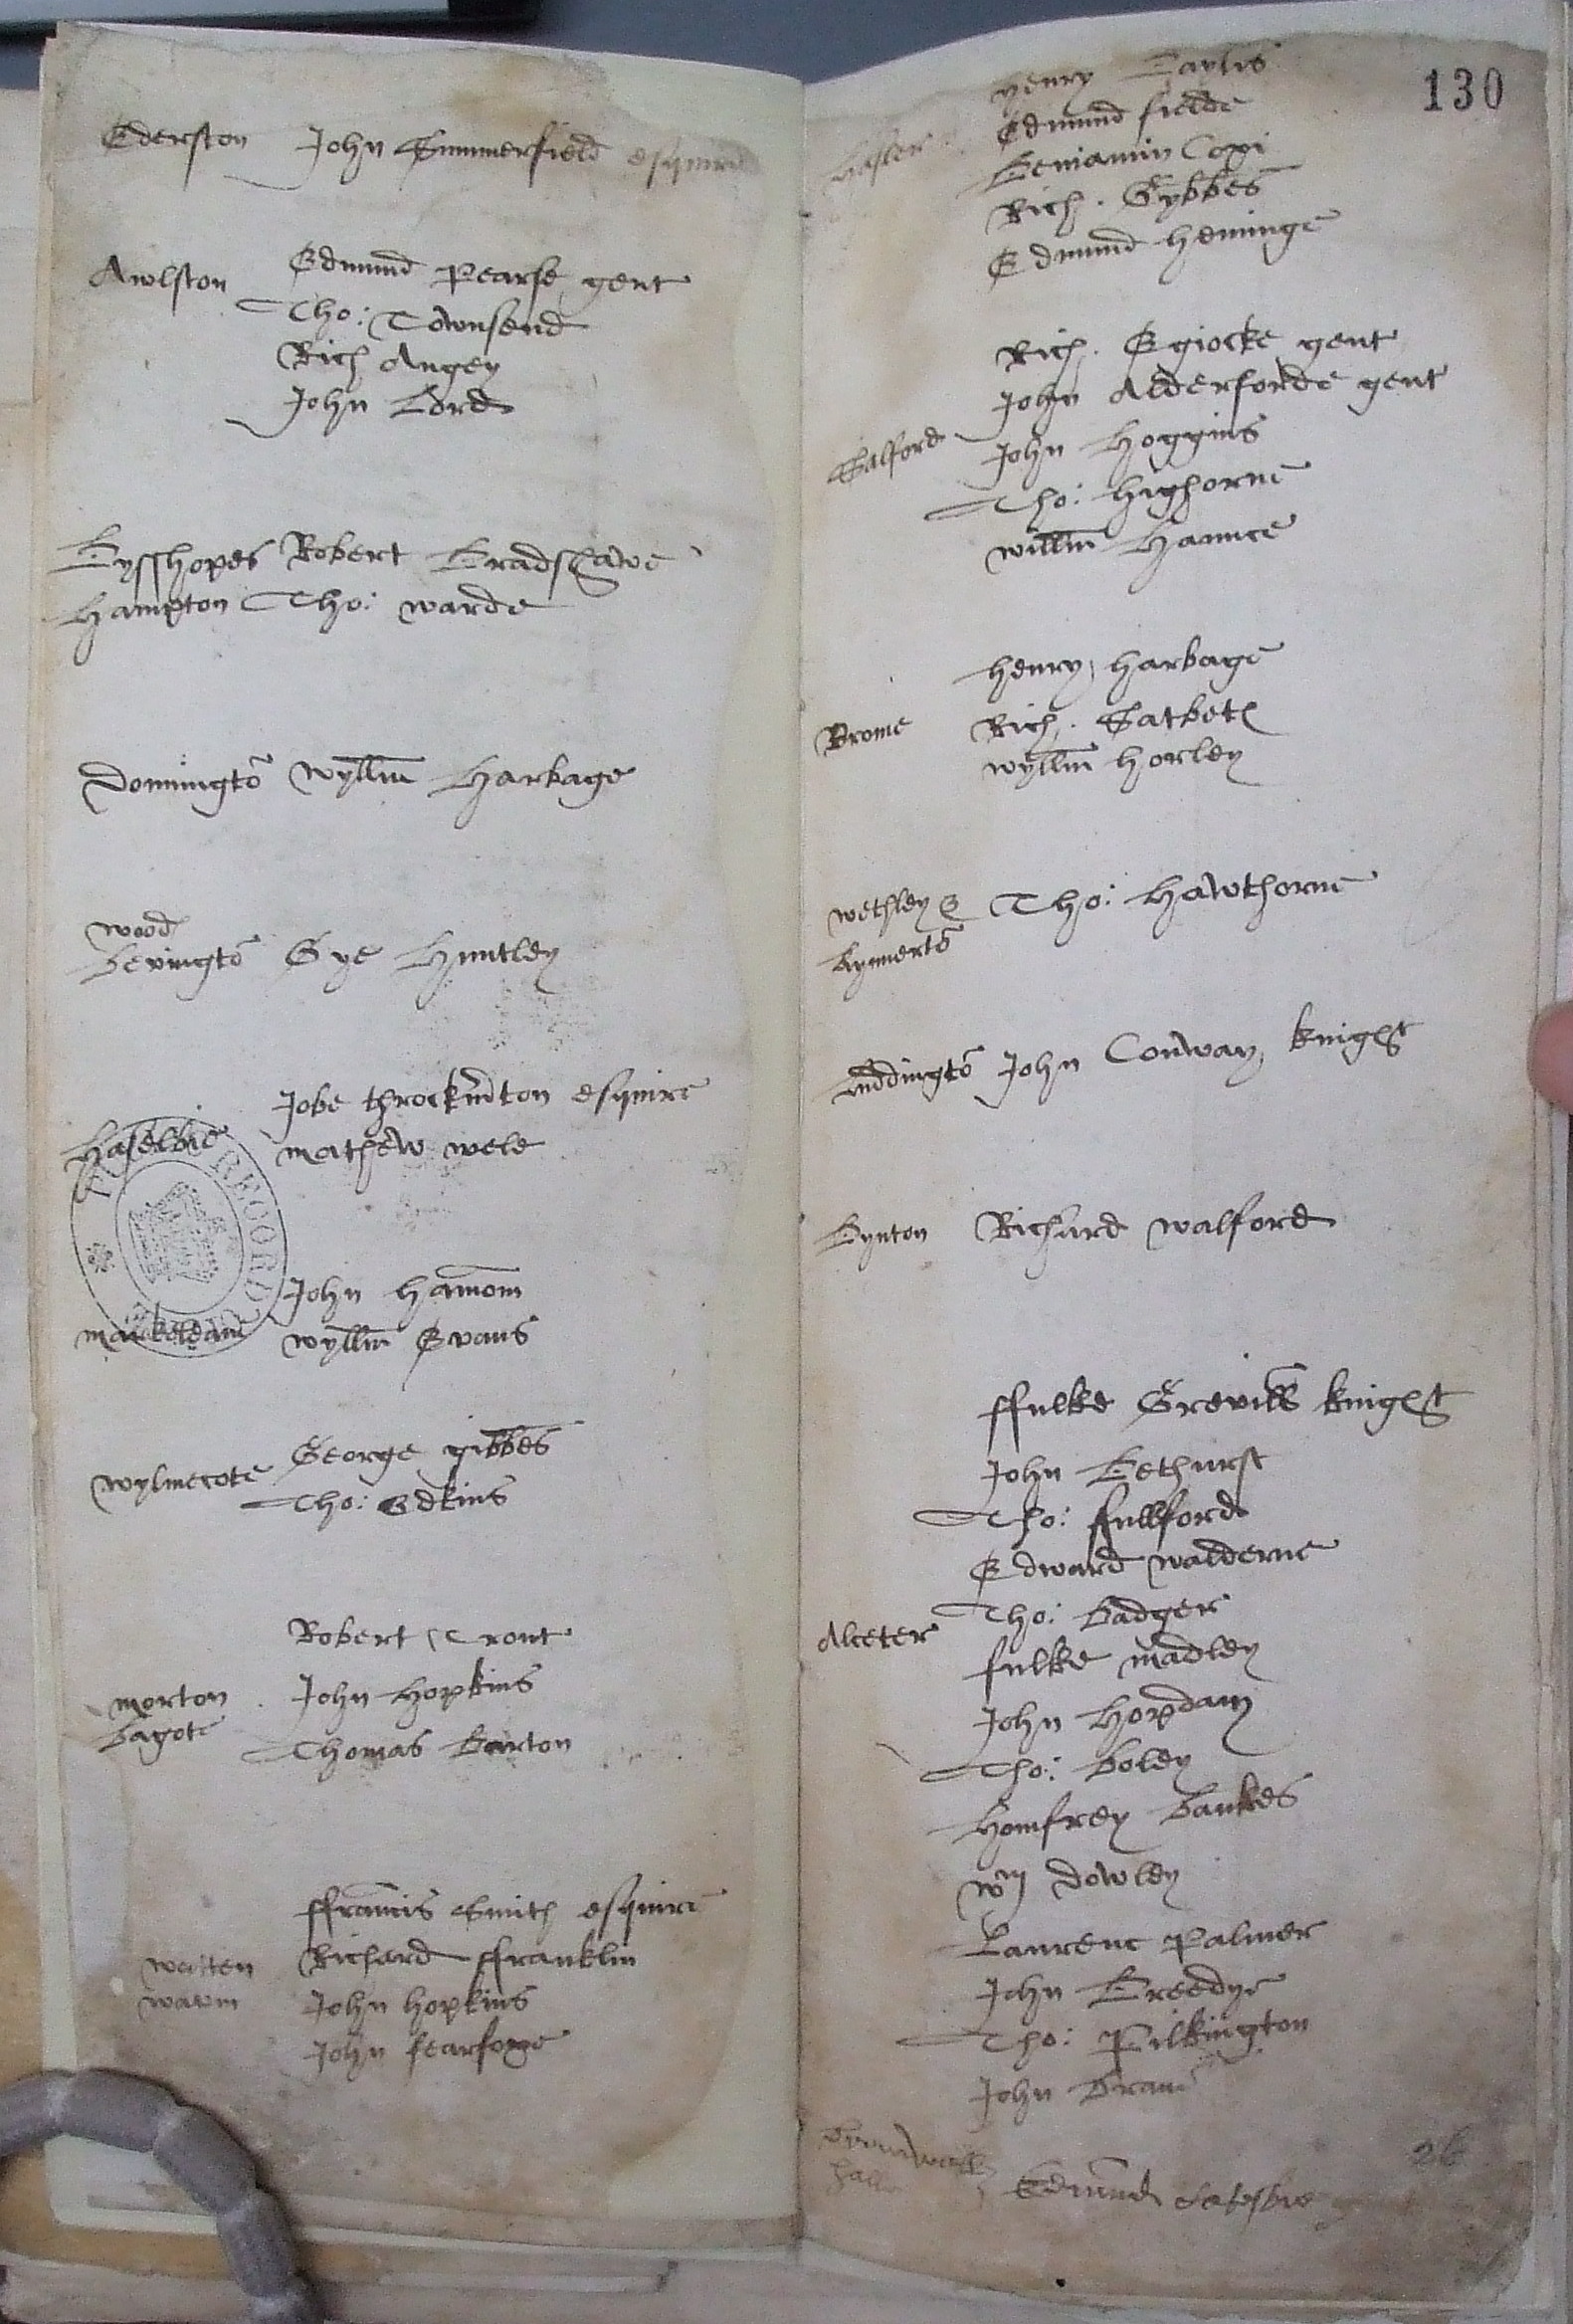 Ederston John Summerfield esquire
Awlston Edmund Pearse gent
Tho: Townsend
Rich Angey
John Lord
Bysshopes Robert Bradshawe
Hampton Tho: warde
Donningtō wyllm Harbage
wood
Bevingtō Gye Huntley
Jobe throckmton esquire
Haselbie mathew wele
RECORD
John Hamom
wyllm Evans
George gibbes
wylmecote Tho: Edkins
Robert Trout
morton John Hopkins
Bagote Thomas Barton
ffrancis Smith esquire
watten Richard ffranklin
wawin John hopkins
John fearforge
130
Henry Baylis
Edmund fielde
Hasler Beniamin Copi
Rich. Gybbes
Edmund heminge
Rich. Egiocke gent
John Alderforde gent
Salford John Hoggins
Tho: highorne
willm Haunce
henry harbage
Brome Rich. Satbeth
wyllm horley
wethley & Tho: Hawthorne
Kynnertō
Luddingtō John Conway knight
Bynton Richard walford
ffulke Grevill knight
John Bethurst
Tho: ffullford
Edward walderne
Alceter Tho: Badger
fulke madley
John Hopdam
Tho: Boley
Homfrey Bankes
Wm Dowley
Laurenc Palmer
John Breedye
Tho: Pilkington
John Brane
26
hall Edmund Catesbie